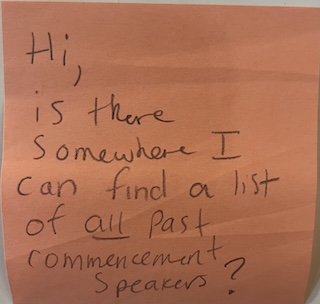 Hi,
is there
Somewhere I
can find a list
of all Past
commencement
Speakers?